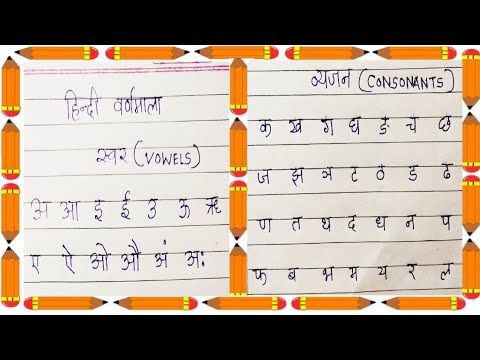 हिन्दी वर्णमाला
स्वर (VOWELS)
अ आ इ ई उ ऊ ऋ
ए ऐ ओ औ अं अः
व्यंजन (CONSONANTS)
क ख ग घ ङ च छ
ज झ ञ ट ठ ड ढ
ण त थ द ध न प
फ ब भ म य र ल